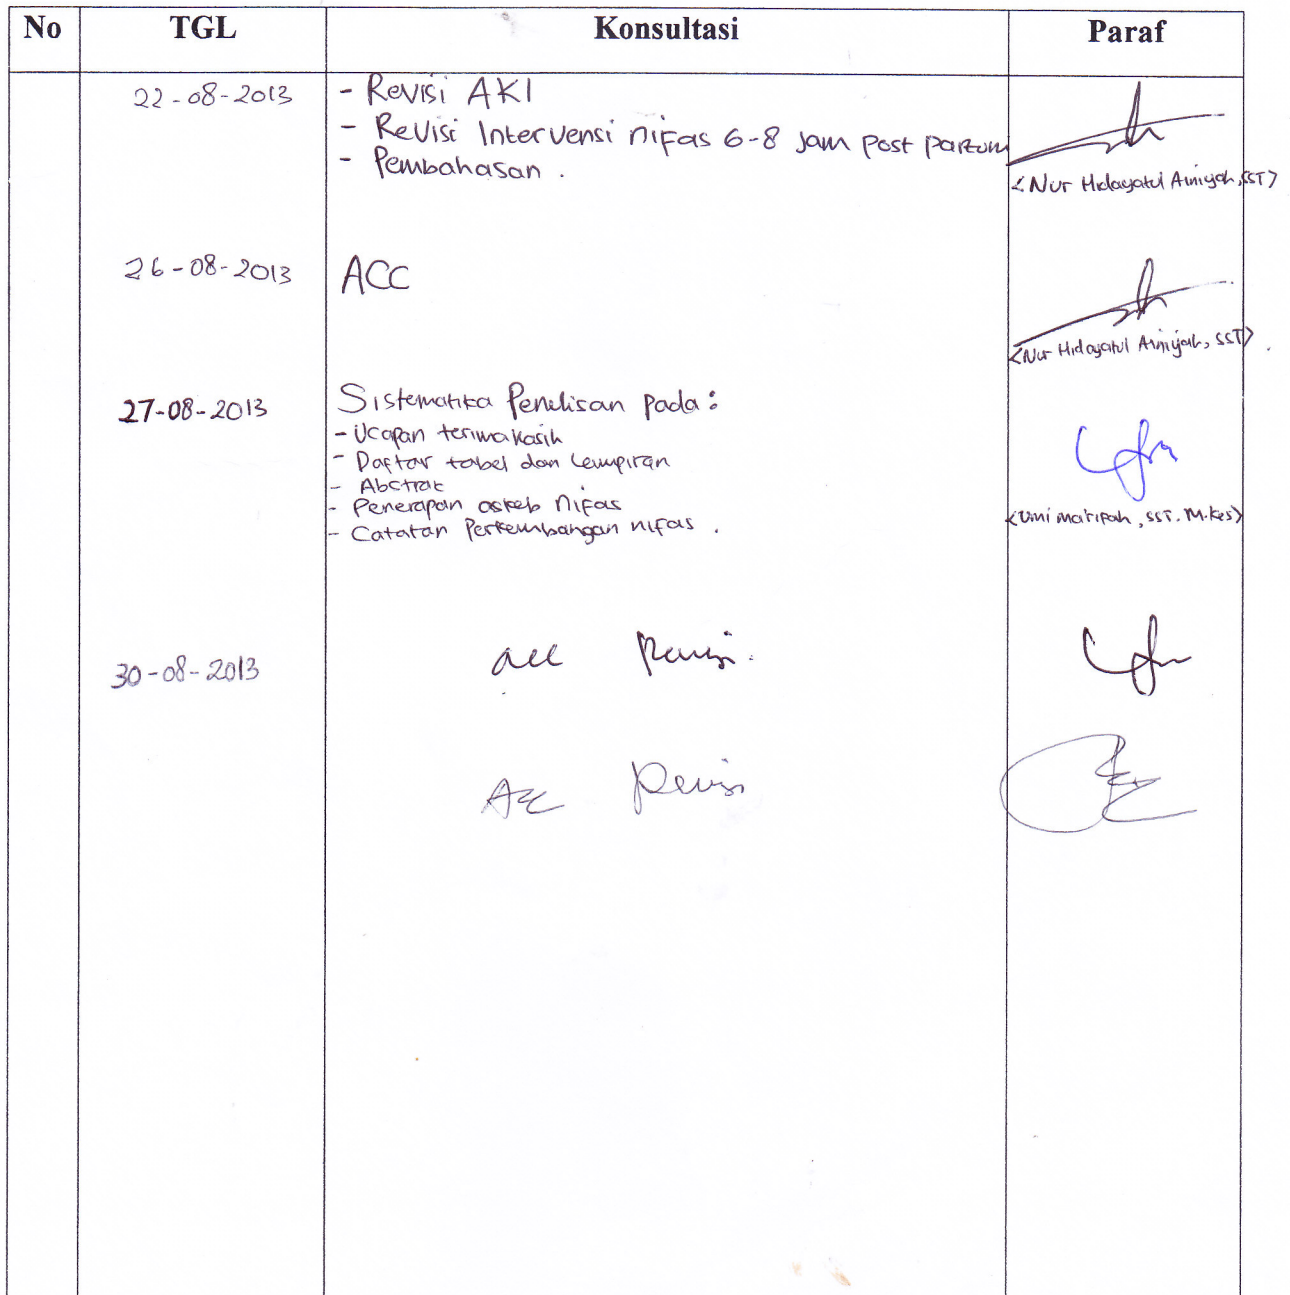 No TGL Konsultasi Paraf
22-08-2013 - Revisi AKI
- Revisi Intervensi nifas 6-8 jam post partum
- Pembahasan .
<Nur Hidayatul Ainiyah, SST>
26-08-2013 ACC
<Nur Hidayatul Ainiyah, SST> .
27-08-2013 Sistematika Penulisan pada :
- Ucapan terimakasih
- Daftar tabel dan Lampiran
- Abstrak
- Penerapan askeb nifas
- Catatan Perkembangan nifas .
<Umi ma'rifah, SST. M.Kes>
30-08-2013 acc Revisi.
Acc Revisi